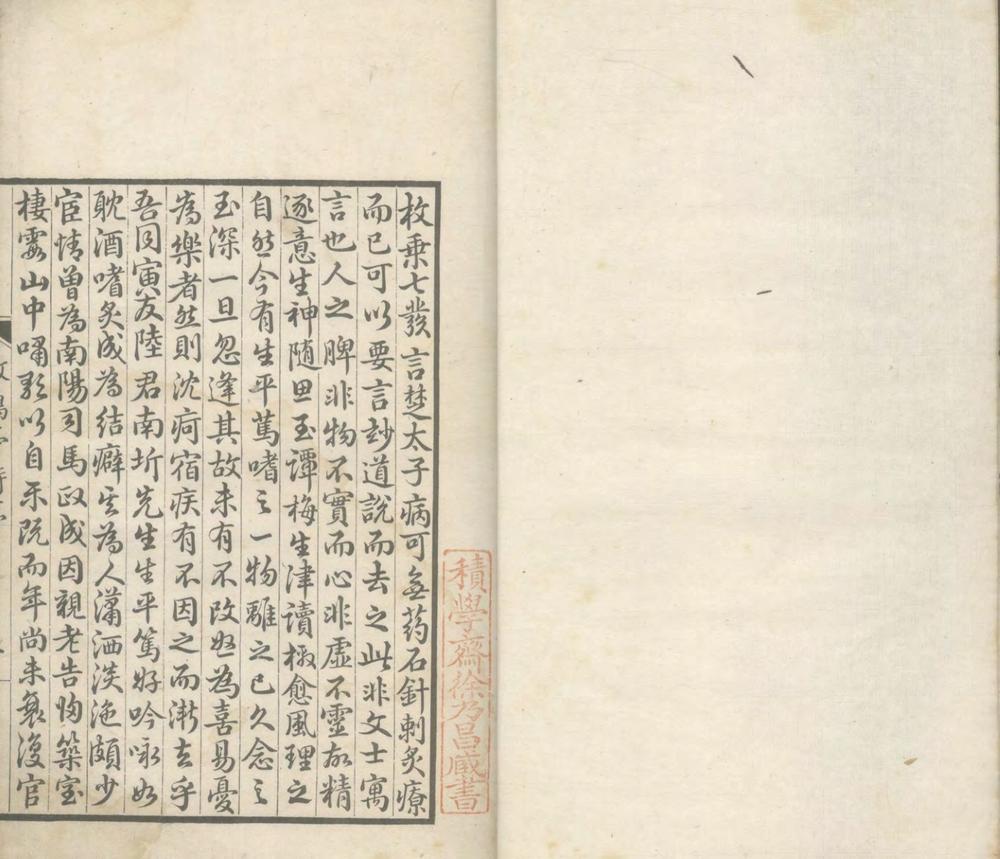 枚乗七發言楚太子病可無药石針刺炙療
而已可以要言玅道説而去之此非文士寓
言也人之脾非物不實而心非虚不靈故精
逐意生神随思至譚梅生津讀檄愈風理之
自然今有生平篤嗜之一物離之已久念之
至深一旦忽逢其故未有不改愁為喜易憂
為樂者然則沈疴宿疾有不因之而漸去乎
吾同寅友陸君南圻先生生平篤好吟咏如
耽酒嗜炙成為結癖其為人瀟洒淡沲頗少
宦情曽為南陽司馬政成因親老告歸築室
棲霞山中嘯歌以自樂既而年尚未衰復官
積學齋徐乃昌藏書